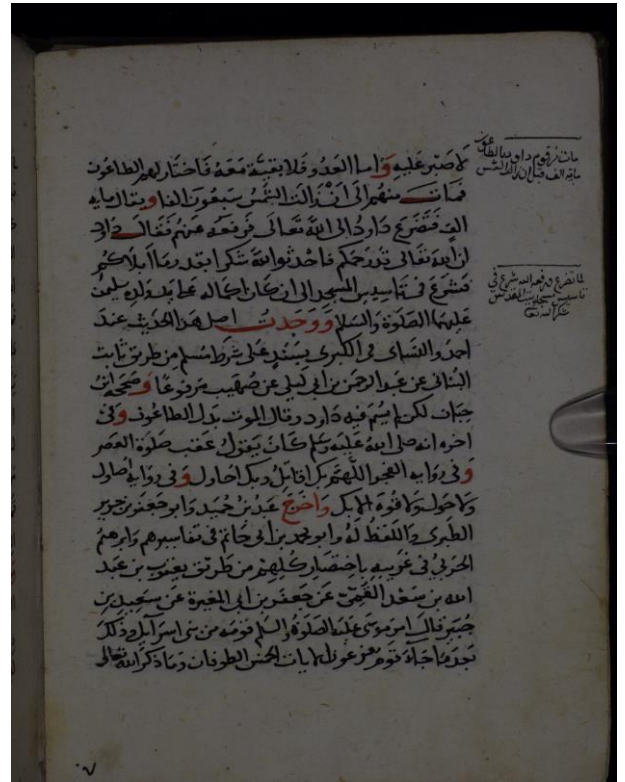 لا صبر عليه واما العدو فلا بقية معه فاختار لهم الطاعون
فمات منهم الى ان زالت الشمس سبعون الفا ويقال مايه
الف فتضرع داود الى الله تعالى فرفعه عنهم فقال داود
ان الله تعالى قد رحمكم فاحدثوا لله شكرا بقدر ما ابلاكم
فشرع في تاسيس المسجد الى ان كان اكماله على يد ولده سليمن
عليهما الصلوة والسلام ووجدت اصل هذا الحديث عند
احمد والنساى في الكبرى بسند على شرط مسلم من طريق ثابت
البناني عن عبد الرحمن بن ابي ليلى عن صهيب مرفوعا وصححه ابن
حبان لكن لم يسم فيه داود وقال الموت بدل الطاعون وفي
اخره انه صلى الله عليه وسلم كان يقول عقب صلوة العصر
وفي روايه الفجر اللهم بك اقاتل وبك احاول وفي روايه اصاول
ولا حول ولا قوة الا بك واخرج عبد بن حميد وابو جعفر بن جرير
الطبري واللفظ له وابو محمد بن ابي حاتم في تفاسيرهم وابرهيم
الحربي في غريبه باختصار كلهم من طريق يعقوب بن عبد
الله بن سعد القمي عن جعفر بن ابي المغيرة عن سعيد بن
جبير قال امر موسى عليه الصلوة والسلم قومه من بني اسرايل وذلك
بعد ما جاء قوم فرعون الايات الخمس الطوفان وما ذكر الله تعالى
مات من قوم داود بالطاعون
مايه الف قبل ان زالت الشمس
لما تضرع ورفعه الله شرع في
تاسيس مسجد بيت المقدس
شكرا لله تعا